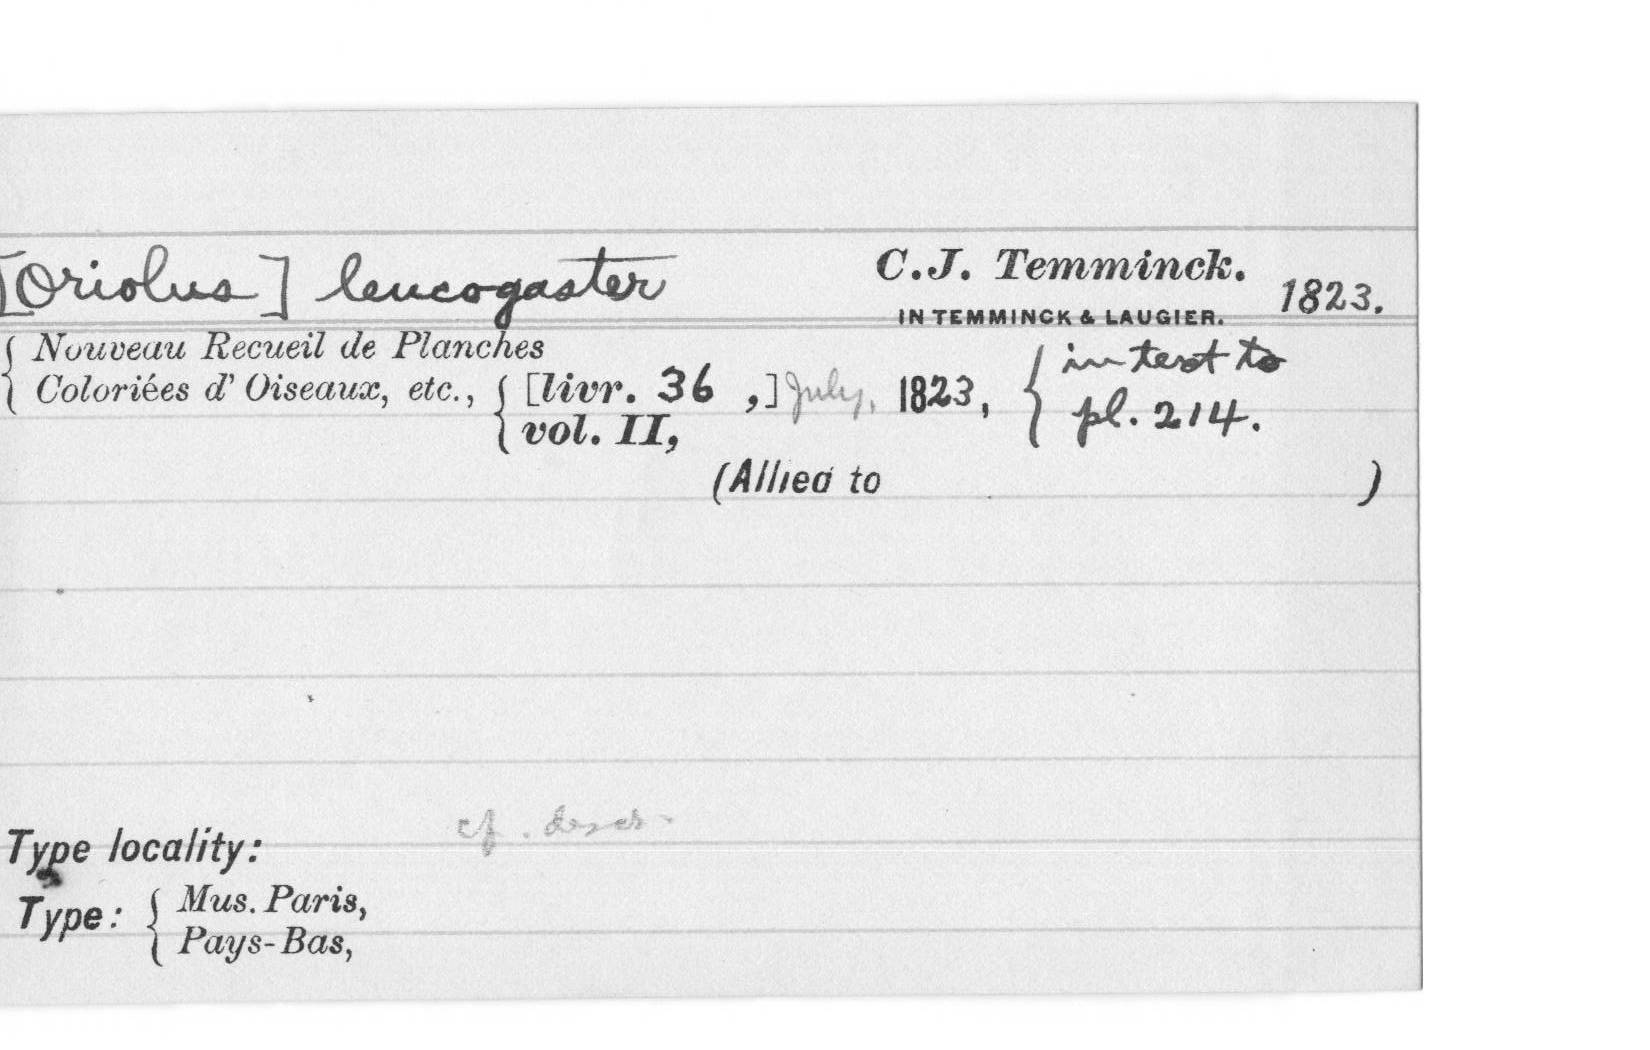 [Oriolus] leucogaster C.J. Temminck. 1823.
IN TEMMINCK & LAUGIER.
Nouveau Recueil de Planches
Coloriées d' Oiseaux, etc., [livr. 36 ,] July, 1823, in text to
vol. II, pl. 214.
(Allied to )
cf. descr.
Type locality:
Type: Mus. Paris,
Pays-Bas,